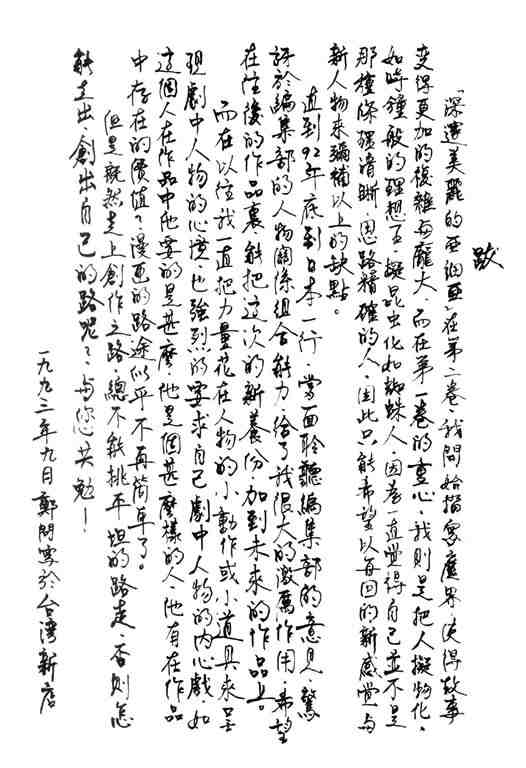 跋
「深邃美麗的亞細亞」在第二卷、我開始描寫魔界、使得故事
變得更加的複雜與龐大、而在第一卷的重心、我則是把人擬物化、
如時鐘般的理想王、擬昆虫化如蜘蛛人、因為一直覺得自己並不是
那種條理清晰、思路精確的人、因此只能希望以每回的新感覺與
新人物來彌補以上的缺點。
直到92年底到日本一行、當面聆聽編集部的意見、驚
訝於編集部的人物關係組合能力、給了我很大的激薦作用、希望
在往後的作品裏、能把這次的新養份、加到未來的作品上。
而在以往我一直把力量花在人物的小動作或小道具來呈
現劇中人物的心境、也強烈的要求自己劇中人物的內心戲、如
這個人在作品中他要的是甚麼、他是個甚麼樣的人、他有在作品
中存在的價值？漫画的路途似乎不再簡单了。
但是既然走上創作之路、總不能挑平坦的路走、否則怎
能走出、創出自己的路呢？、与您共勉！
一九九三年九月鄭問寫於台灣新店